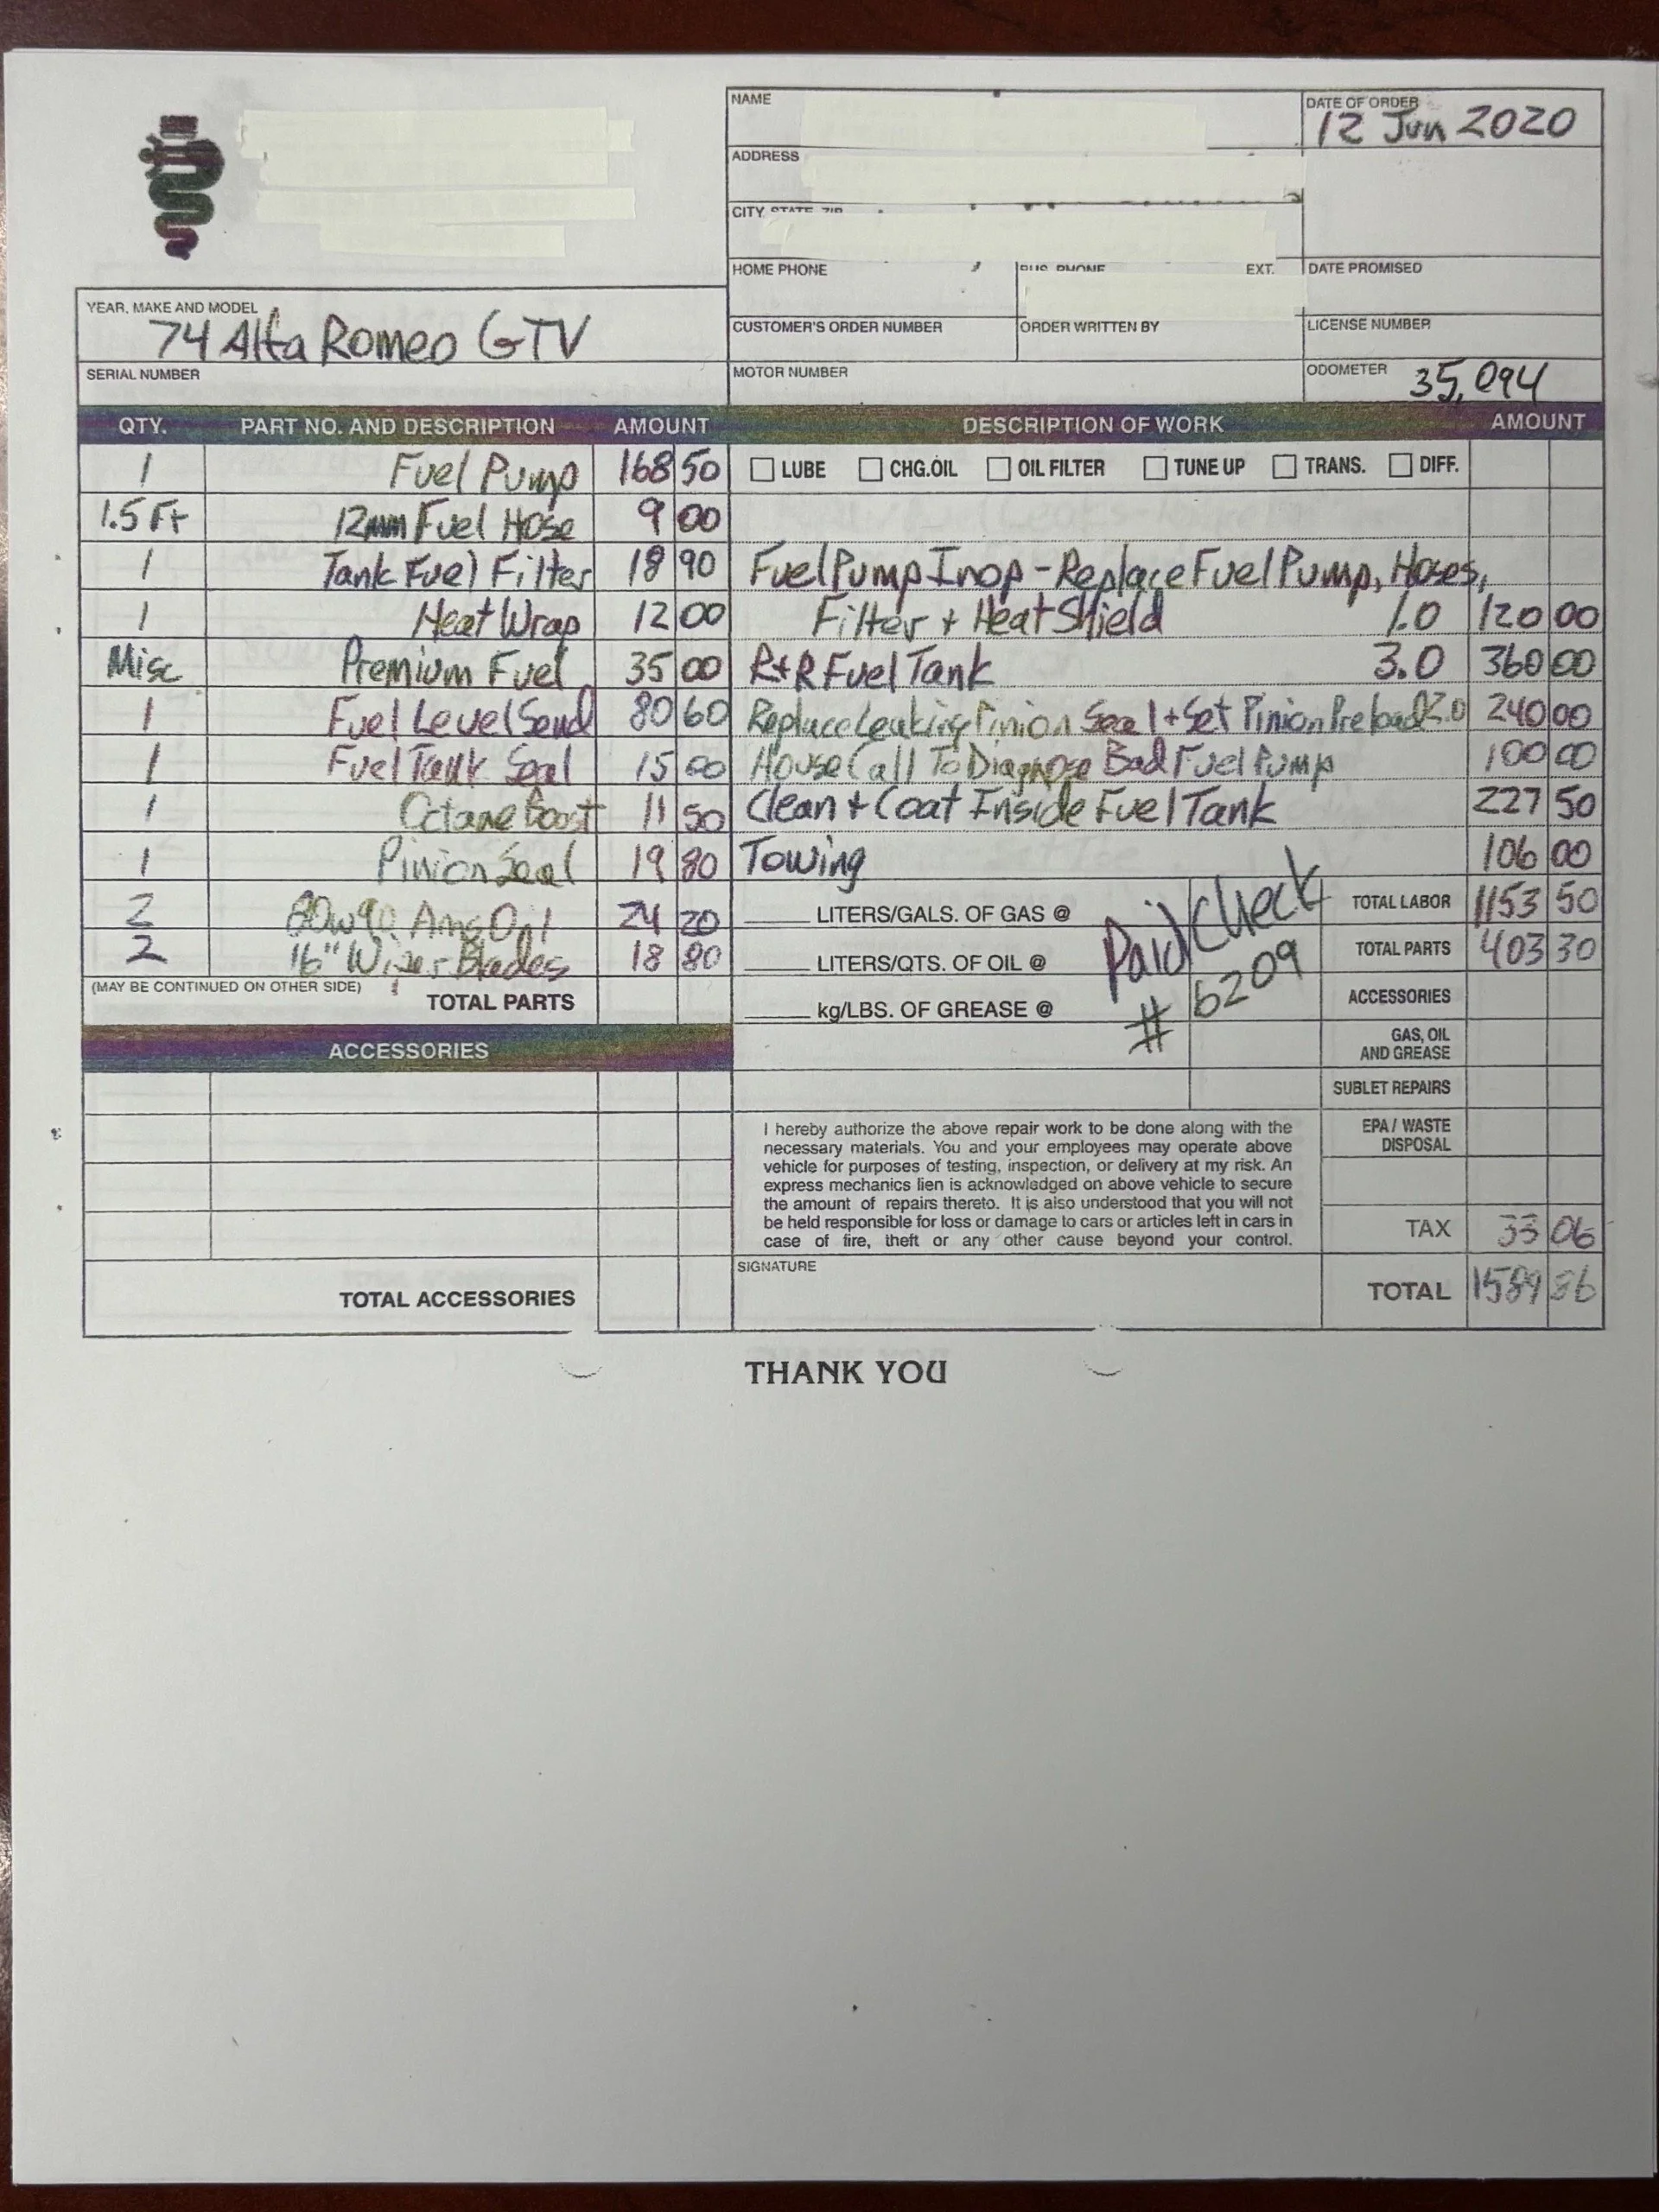 NAME
DATE OF ORDER
12 Jun 2020
ADDRESS
CITY, STATE, ZIP
HOME PHONE
BUS. PHONE
EXT.
DATE PROMISED
YEAR, MAKE AND MODEL
74 Alfa Romeo GTV
CUSTOMER'S ORDER NUMBER
ORDER WRITTEN BY
LICENSE NUMBER
SERIAL NUMBER
MOTOR NUMBER
ODOMETER 35,094
QTY. PART NO. AND DESCRIPTION AMOUNT
1 Fuel Pump 168 50
1.5 Ft 12mm Fuel Hose 9 00
1 Tank Fuel Filter 18 90
1 Heat Wrap 12 00
Misc Premium Fuel 35 00
1 Fuel Level Send 80 60
1 Fuel Tank Seal 15 00
1 Octane Boost 11 50
1 Pinion Seal 19 80
2 80w90 AmsOil 24 20
2 16" Wiper Blades 18 80
(MAY BE CONTINUED ON OTHER SIDE)
TOTAL PARTS
ACCESSORIES
TOTAL ACCESSORIES
DESCRIPTION OF WORK AMOUNT
LUBE CHG.OIL OIL FILTER TUNE UP TRANS. DIFF.
Fuel Pump Inop - Replace Fuel Pump, Hoses,
Filter + Heat Shield 1.0 120 00
R+R Fuel Tank 3.0 360 00
Replace Leaking Pinion Seal + Set Pinion Preload 2.0 240 00
House Call To Diagnose Bad Fuel Pump 100 00
Clean + Coat Inside Fuel Tank 227 50
Towing 106 00
LITERS/GALS. OF GAS @
LITERS/QTS. OF OIL @
kg/LBS. OF GREASE @
Paid Check
# 6209
TOTAL LABOR 1153 50
TOTAL PARTS 403 30
ACCESSORIES
GAS, OIL
AND GREASE
SUBLET REPAIRS
EPA / WASTE
DISPOSAL
TAX 33 06
TOTAL 1589 86
I hereby authorize the above repair work to be done along with the
necessary materials. You and your employees may operate above
vehicle for purposes of testing, inspection, or delivery at my risk. An
express mechanics lien is acknowledged on above vehicle to secure
the amount of repairs thereto. It is also understood that you will not
be held responsible for loss or damage to cars or articles left in cars in
case of fire, theft or any other cause beyond your control.
SIGNATURE
THANK YOU